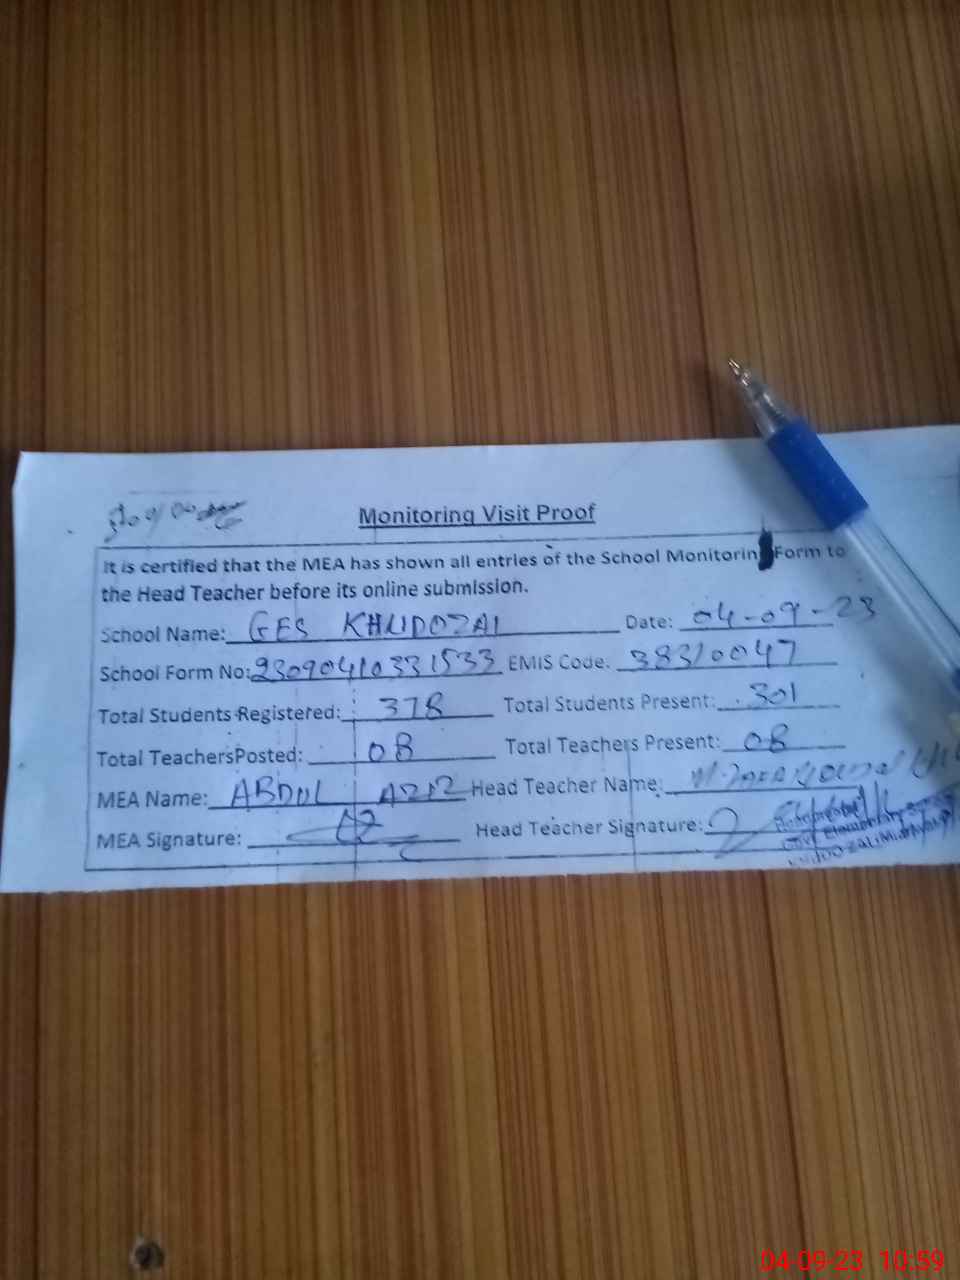 Monitoring Visit Proof
It is certified that the MEA has shown all entries of the School Monitorin Form to
the Head Teacher before its online submission.
School Name: GES KHUDOZAI Date: 04-09-23
School Form No: 23090410331533 EMIS Code: 38310047
Total Students Registered: 378 Total Students Present: 301
Total TeachersPosted: 08 Total Teachers Present: 08
MEA Name: ABDUL AZIZ Head Teacher Name:
MEA Signature: Head Teacher Signature:
04-09-23 10:59